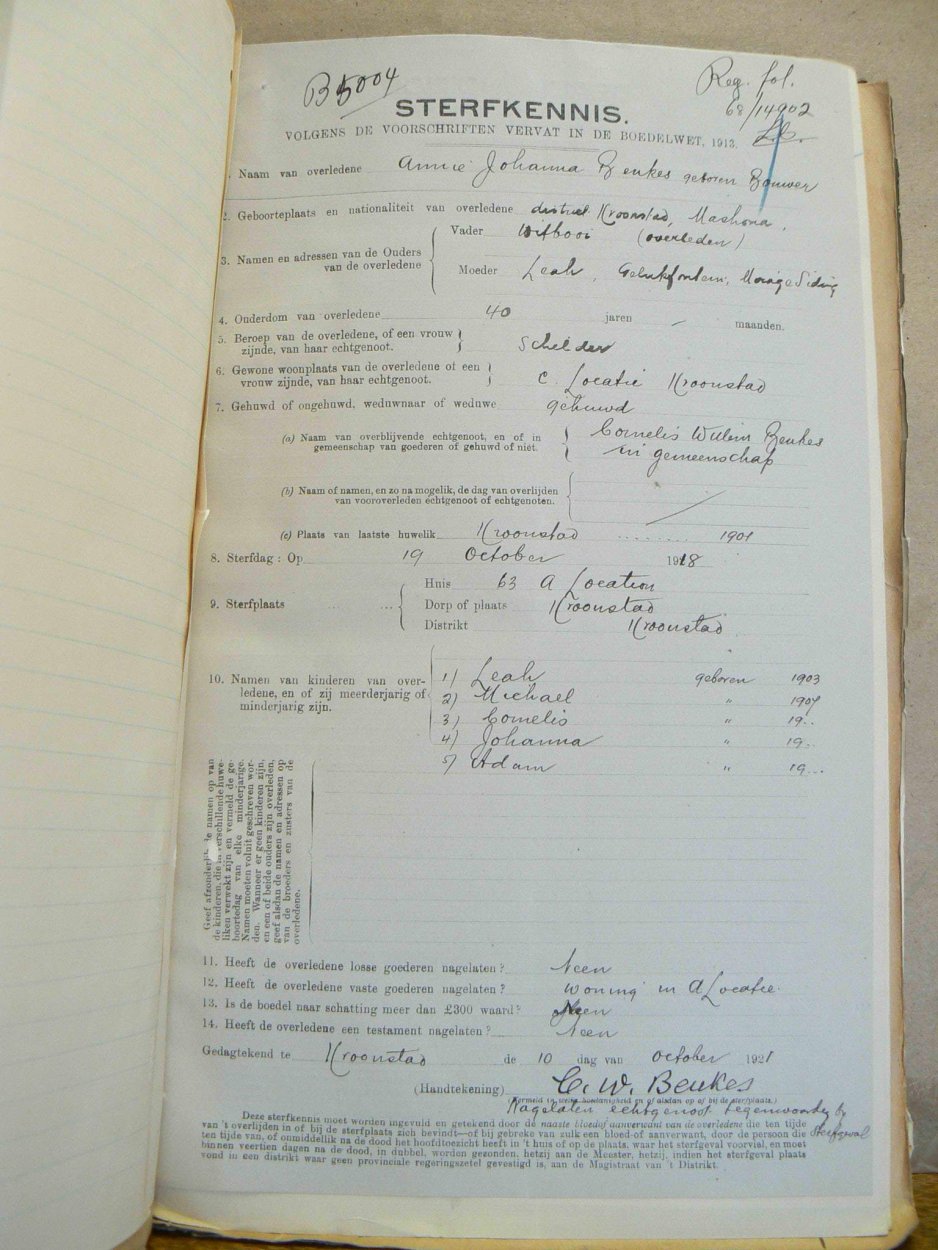 B 5004
Reg. fol.
68/14902
STERFKENNIS.
VOLGENS DE VOORSCHRIFTEN VERVAT IN DE BOEDELWET, 1913.
1. Naam van overledene Annie Johanna Beukes geboren Bouwer
2. Geboorteplaats en nationaliteit van overledene district Kroonstad, Mashona,
3. Namen en adressen van de Ouders van de overledene
Vader Witbooi (overleden)
Moeder Leah, Gelukfontein, Siding
4. Ouderdom van overledene 40 jaren — maanden.
5. Beroep van de overledene, of een vrouw zijnde, van haar echtgenoot. Schelder
6. Gewone woonplaats van de overledene of een vrouw zijnde, van haar echtgenoot. C. Locatie Kroonstad
7. Gehuwd of ongehuwd, weduwnaar of weduwe gehuwd
(a) Naam van overblijvende echtgenoot, en of in gemeenschap van goederen of gehuwd of niet. Cornelis Willem Beukes
in gemeenschap
(b) Naam of namen, en zo na mogelik, de dag van overlijden van vooroverleden echtgenoot of echtgenoten.
(c) Plaats van laatste huwelik Kroonstad 1901
8. Sterfdag: Op 19 October 1918
9. Sterfplaats
Huis 63 A Location
Dorp of plaats Kroonstad
Distrikt Kroonstad
10. Namen van kinderen van overledene, en of zij meerderjarig of minderjarig zijn.
1) Leah geboren 1903
2) Michael " 1907
3) Cornelis " 19..
4) Johanna " 19..
5) Adam " 19...
Geef afzonderlik de namen op van
de kinderen, die in verschillende huwe-
liken verwekt zijn en vermeld de ge-
boortedag van elke minderjarige.
Namen moeten voluit geschreven wor-
den. Wanneer er geen kinderen zijn,
en een of beide ouders zijn overleden,
geef alsdan de namen en adressen op
van de broeders en zusters van de
overledene.
11. Heeft de overledene losse goederen nagelaten? Neen
12. Heeft de overledene vaste goederen nagelaten? Woning in A Locatie.
13. Is de boedel naar schatting meer dan £300 waard? Neen
14. Heeft de overledene een testament nagelaten? Neen
Gedagtekend te Kroonstad de 10 dag van October 1921
(Handtekening) C. W. Beukes
(Vermeld in welke hoedanigheid en of alsdan op of bij de sterfplaats.)
Nagelaten echtgenoot tegenwoordig by
sterfgeval
Deze sterfkennis moet worden ingevuld en getekend door de naaste bloed of aanverwant van de overledene die ten tijde
van 't overlijden in of bij de sterfplaats zich bevindt—of bij gebreke van zulk een bloed-of aanverwant, door de persoon die
ten tijde van, of onmiddellik na de dood het hoofdtoezicht heeft in 't huis of op de plaats, waar het sterfgeval voorviel, en moet
binnen veertien dagen na de dood, in dubbel, worden gezonden, hetzij aan de Meester, hetzij, indien het sterfgeval plaats
vond in een distrikt waar geen provinciale regeringszetel gevestigd is, aan de Magistraat van 't Distrikt.